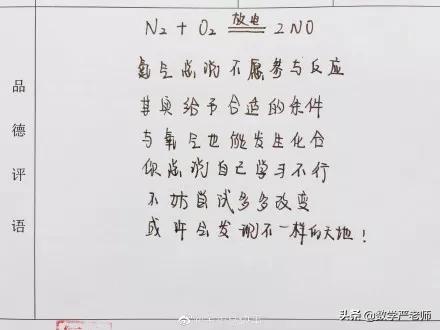 N₂ + O₂ 放电 2NO
氮气总说不愿参与反应
其实给予合适的条件
与氧气也能发生化合
你总说自己学习不行
不妨尝试多多改变
或许会发现不一样的天地！
品德评语
头条@数学严老师